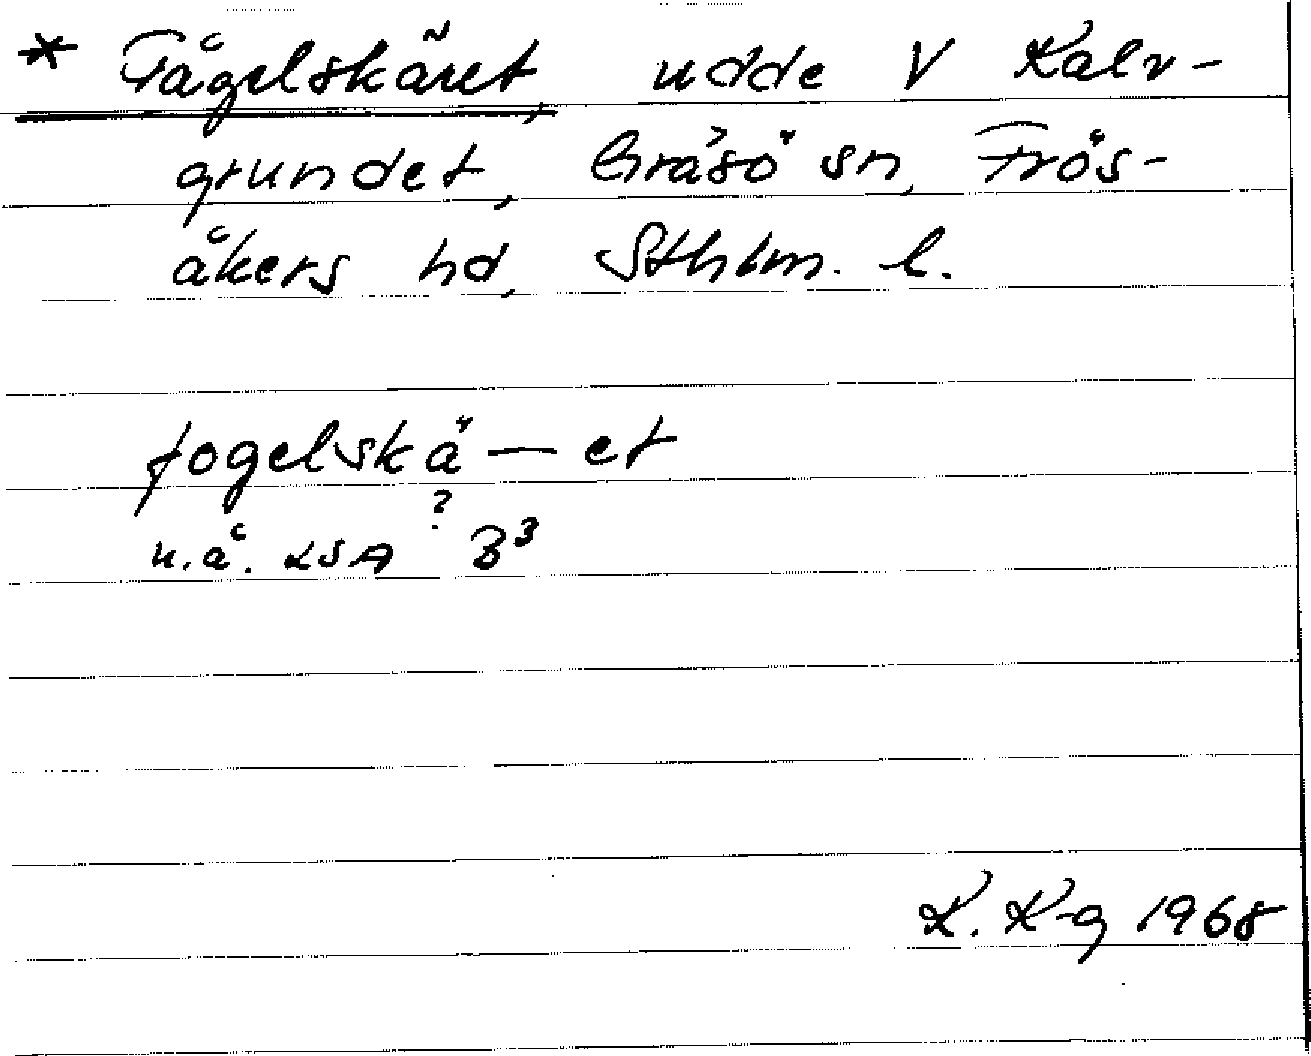 * Fågelskäret, udde V Kalv-
grundet, Gräsö sn, Frös-
åkers hd, Sthlm. l.
fogelskä — et
?
u.å. LSA B3
K. K-g 1968